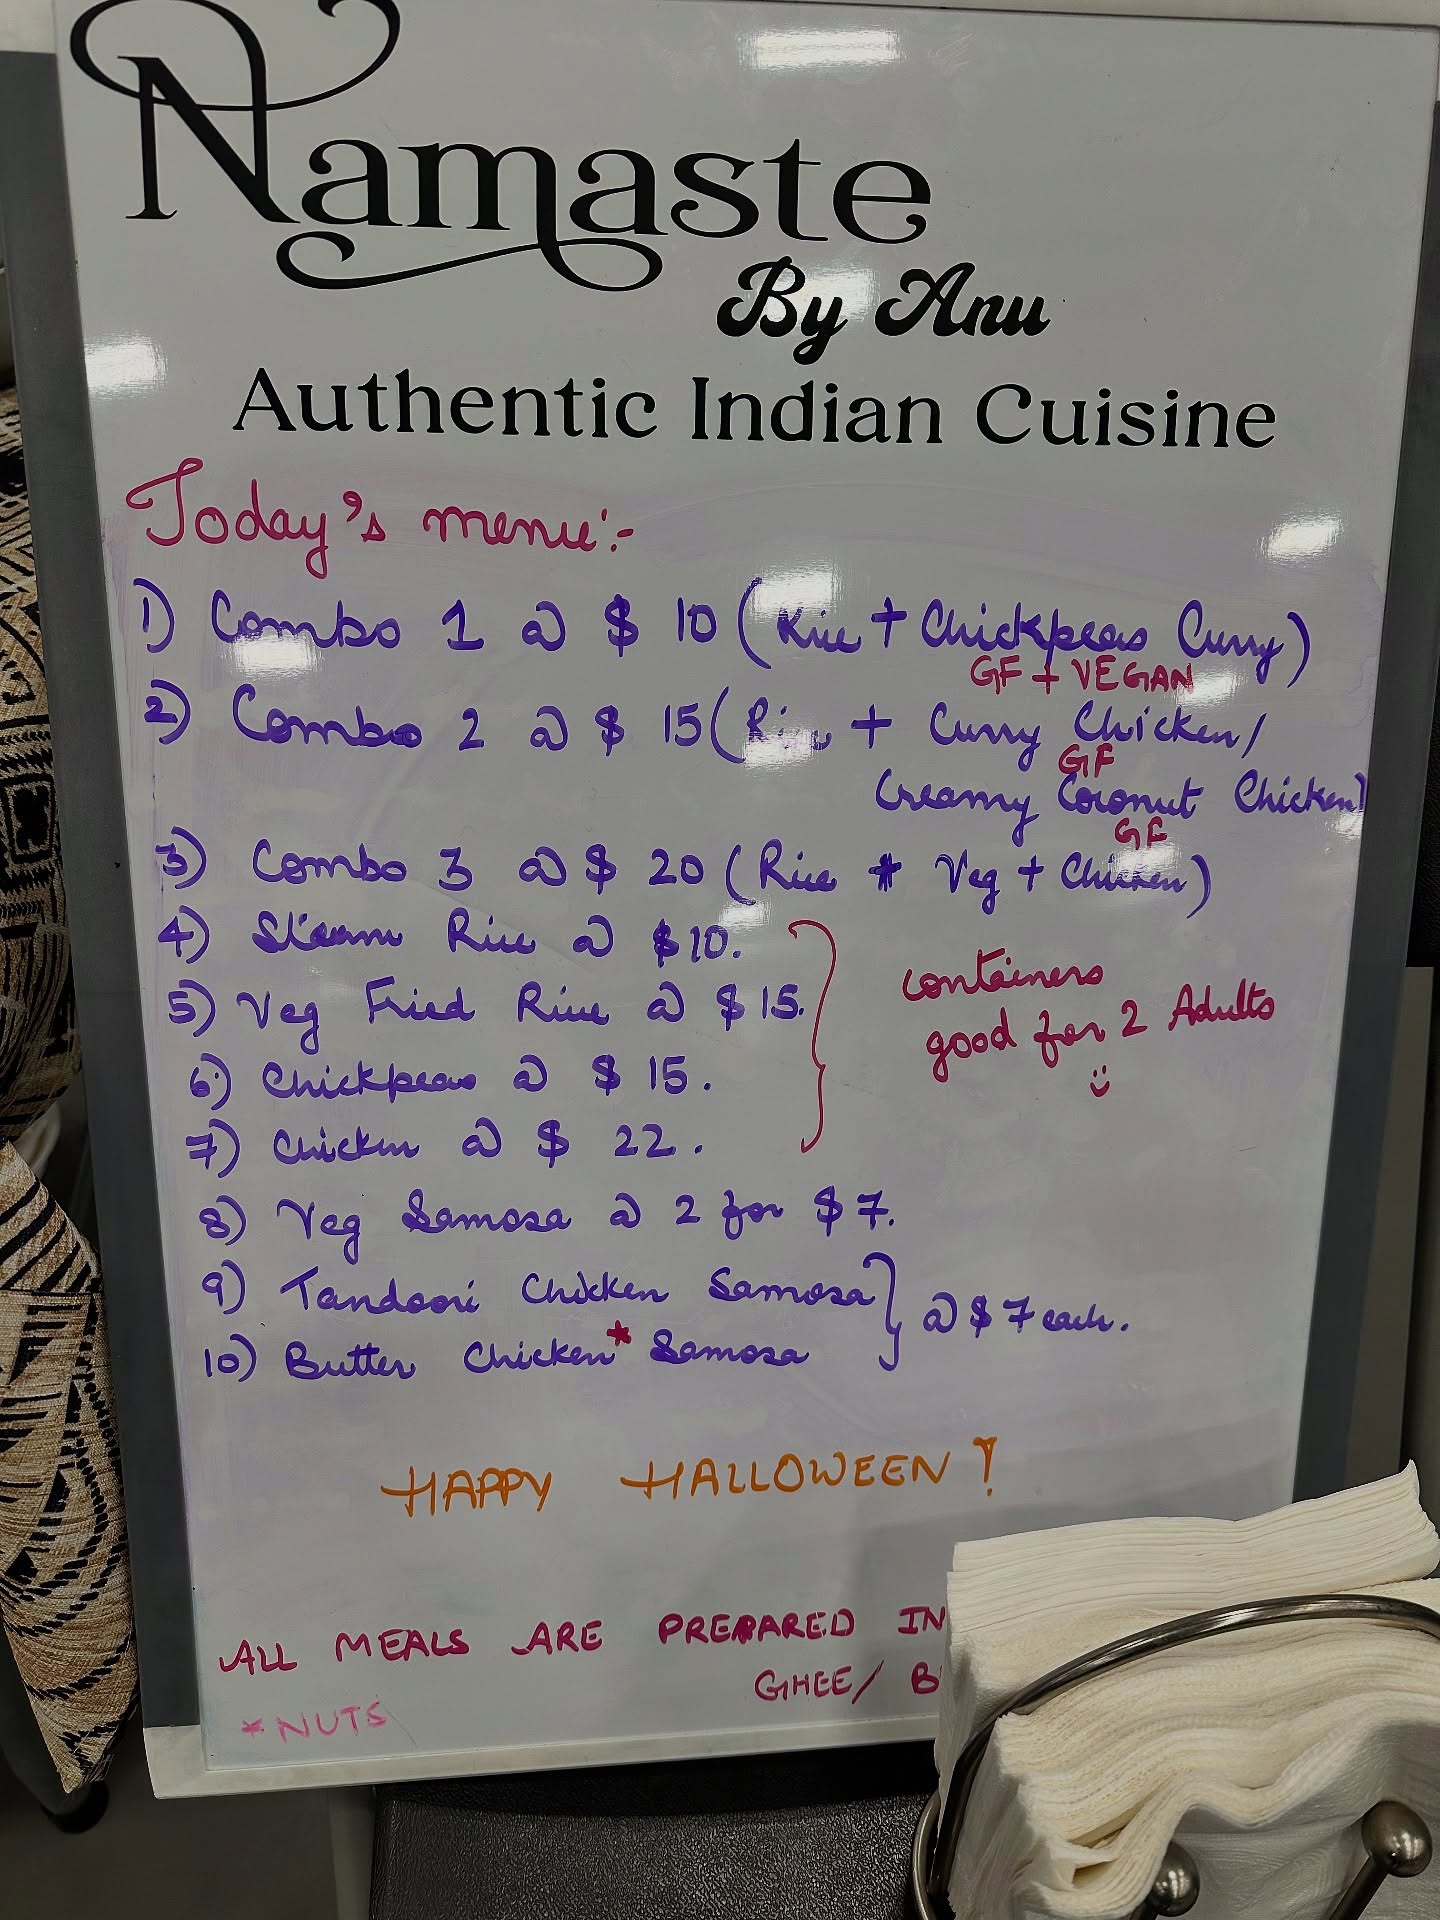 Namaste
By Anu
Authentic Indian Cuisine
Today's menu:-
1) Combo 1 @ $ 10 (Rice + Chickpeas Curry)
GF + VEGAN
2) Combo 2 @ $ 15 (Rice + Curry Chicken/
GF
Creamy Coconut Chicken)
GF
3) Combo 3 @ $ 20 (Rice + Veg + Chicken)
4) Steam Rice @ $10.
5) Veg Fried Rice @ $15.
6) Chickpeas @ $ 15.
7) Chicken @ $ 22.
containers
good for 2 Adults
8) Veg Samosa @ 2 for $7.
9) Tandoori Chicken Samosa
10) Butter Chicken* Samosa
@ $7 each.
HAPPY HALLOWEEN!
ALL MEALS ARE PREPARED IN
GHEE/
*NUTS